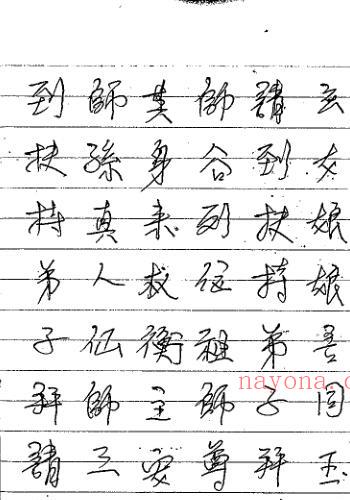 玄女娘娘玉
請到扶持弟子拜
師合列位祖師尊
其身來救衡主要
師孫真人仙師三
到扶持弟子拜請
nayona.c